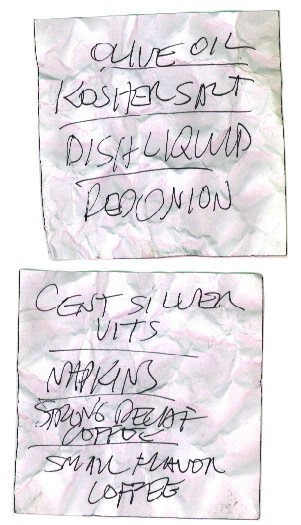 OLIVE OIL
KOSHER SALT
DISH LIQUID
RED ONION
CENT SILVER
VITS
NAPKINS
STRONG DECAF
COFFEE
SMALL FLAVOR
COFFEE